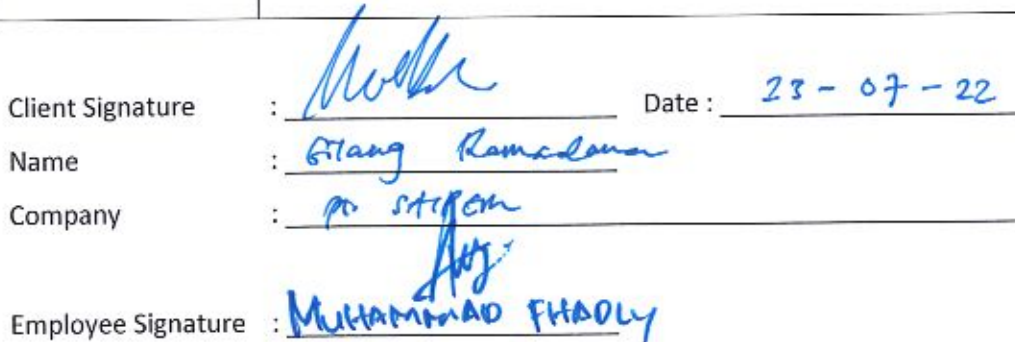 Client Signature : Date : 23 - 07 - 22
Name : Gilang Ramadana
Company : PT. SAIPEM
Employee Signature : MUHAMMAD FHADLY